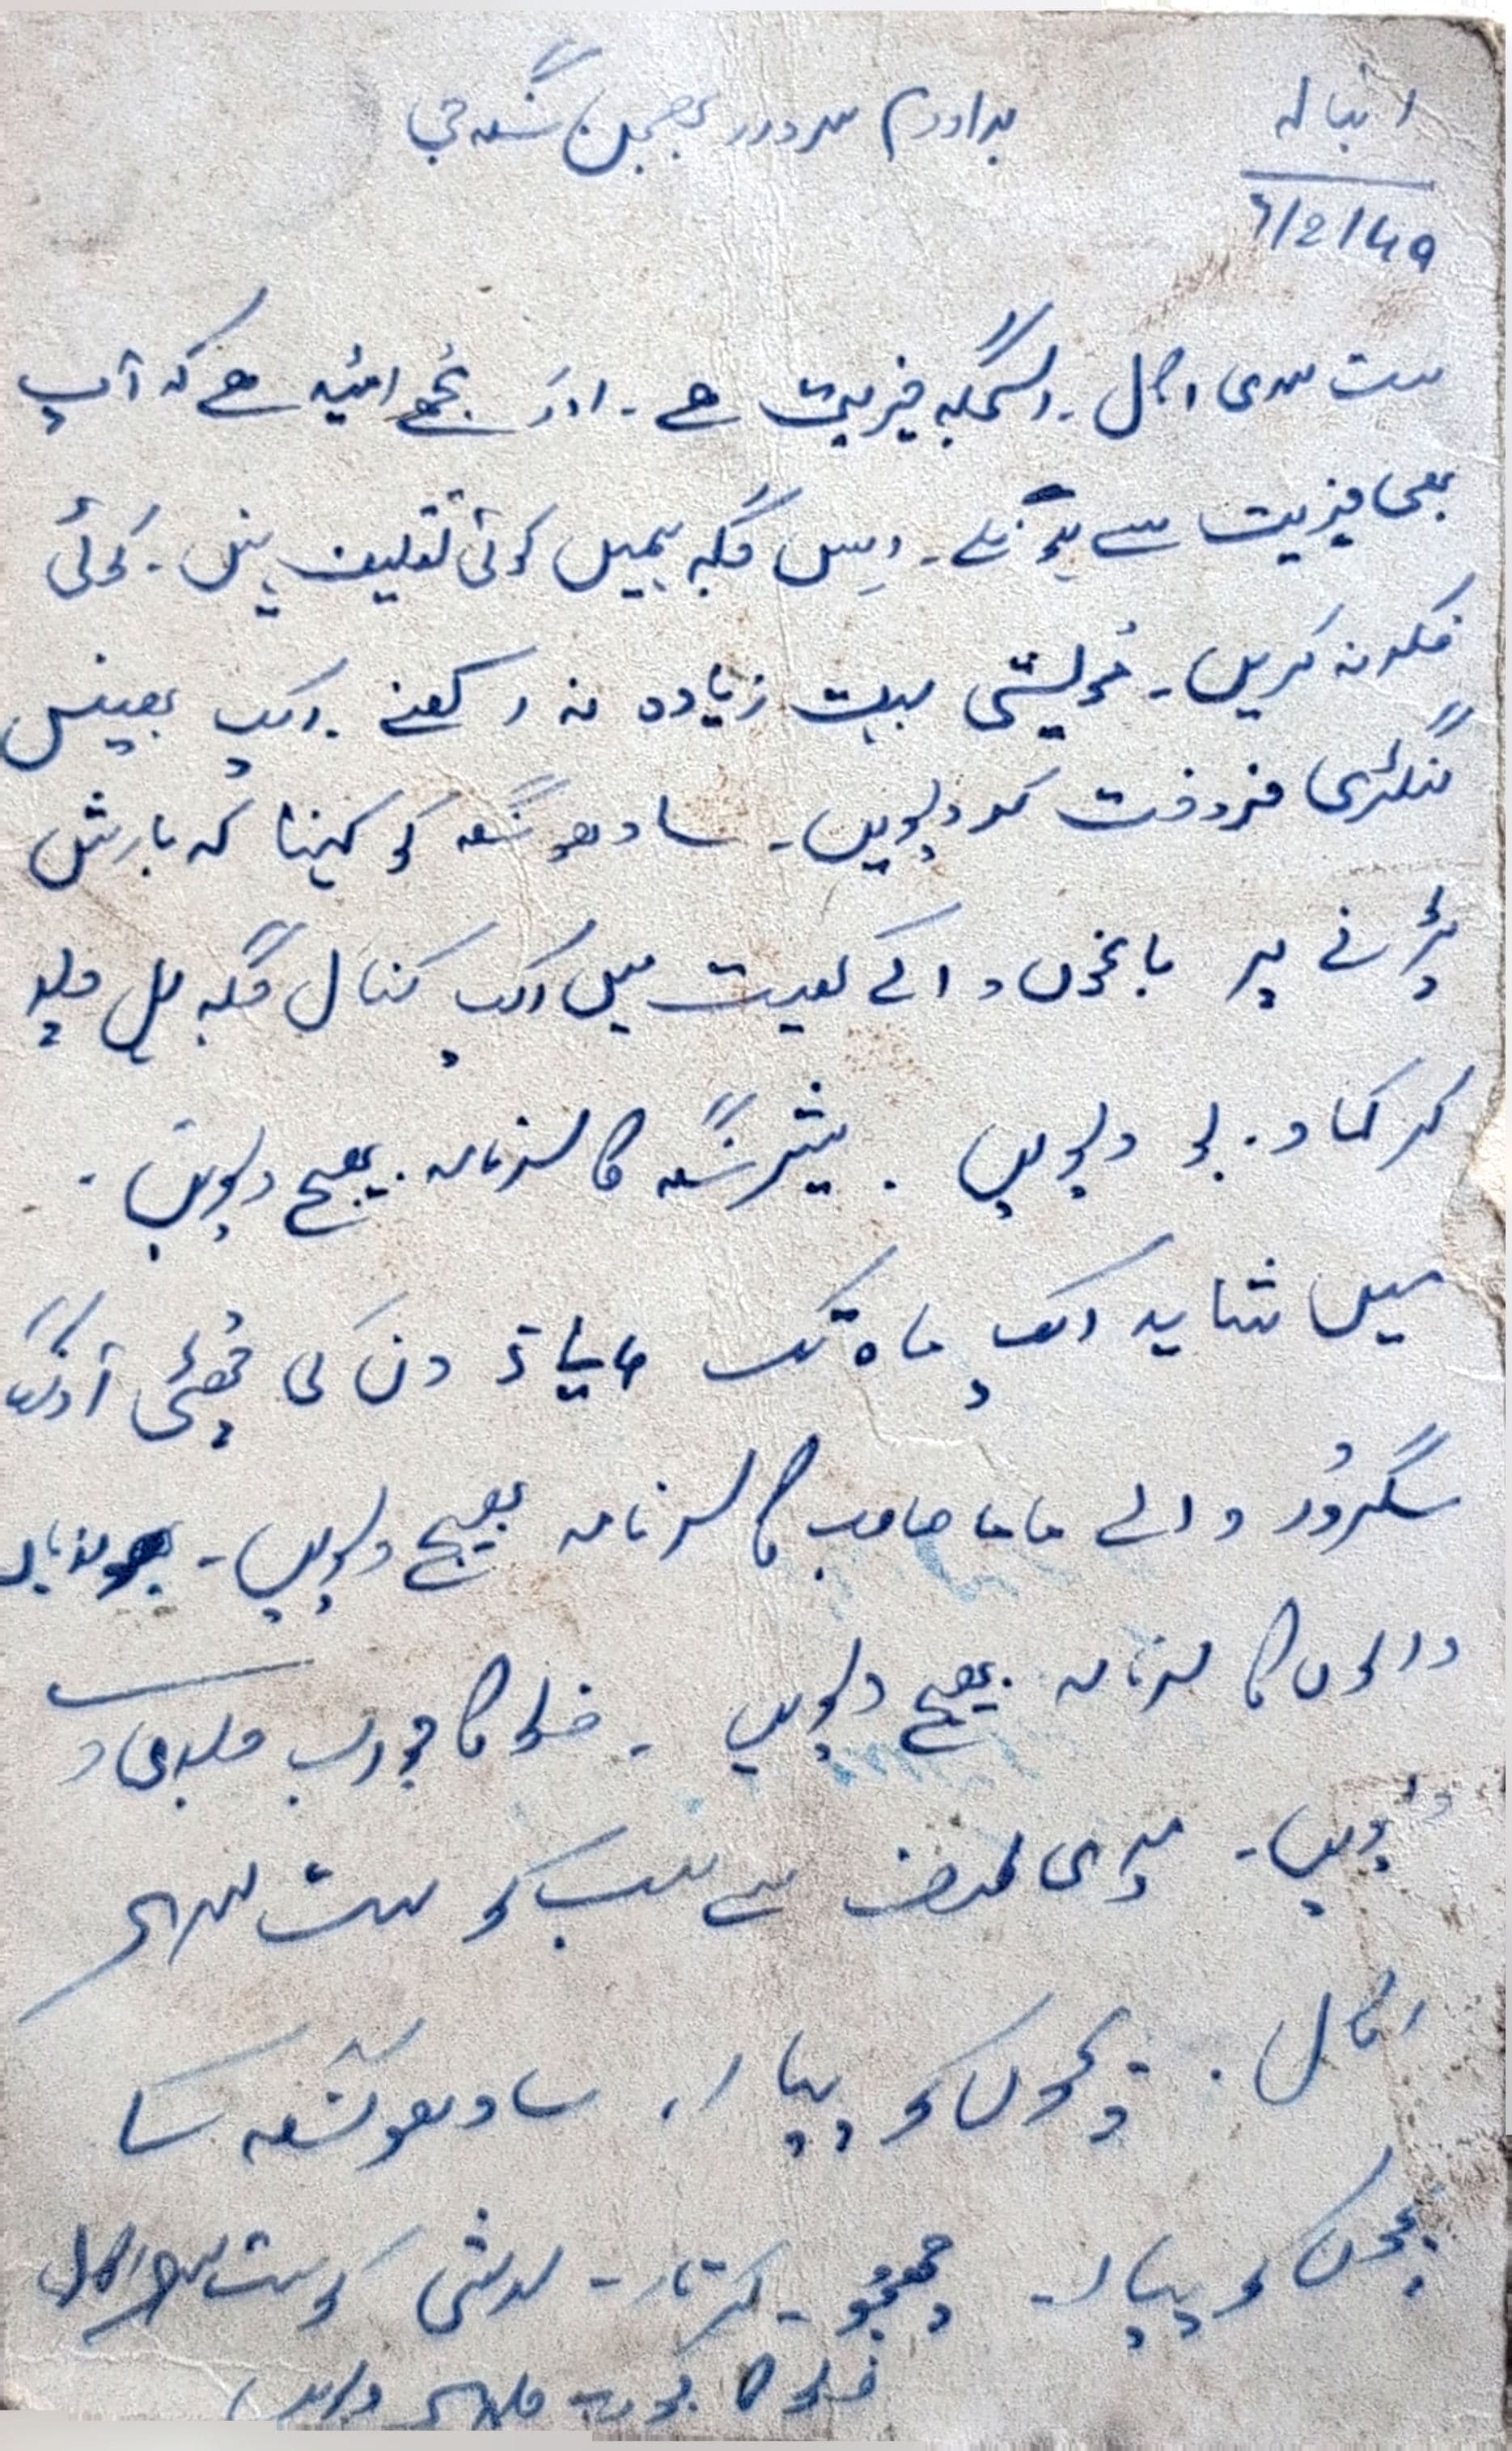 انبالہ
6/2/49
برادرم سردار بھجن سنگھ جی
ست سری اکال ۔ اسجگہ خیریت ہے ۔ اور مجھے امید ہے کہ آپ
بھی خیریت سے ہونگے ۔ اِس جگہ ہمیں کوئی تکلیف نہیں ۔ کوئی
فکر نہ کریں ۔ مُویشی بہت زیادہ نہ رکھنے ۔ ایک بھینس
لنگڑی فروخت کر دیویں ۔ سادھو سنگھ کو کہنا کہ بارش
پڑنے پر باغوں والے کھیت میں ایک کنال جگہ ہل چلا
کر کماد بو دیویں . شیر سنگھ کا سرنامہ بھیج دیویں ۔
میں شاید ایک ماہ تک دن کی چُھٹی آونگا
سنگرُور والے ماما صاحب کا سرنامہ بھیج دیویں ۔
والوں کا سرنامہ بھیج دیویں ۔ خط کا جواب جلدی
دیویں ۔ میری طرف سے سب کو ست سری
اکال . بچوں کو پیار ، سادھو سنگھ کا
بچوں کو پیار ۔ کرتار ۔ کو ست سری اکال
خط کا جواب جلدی دیویں